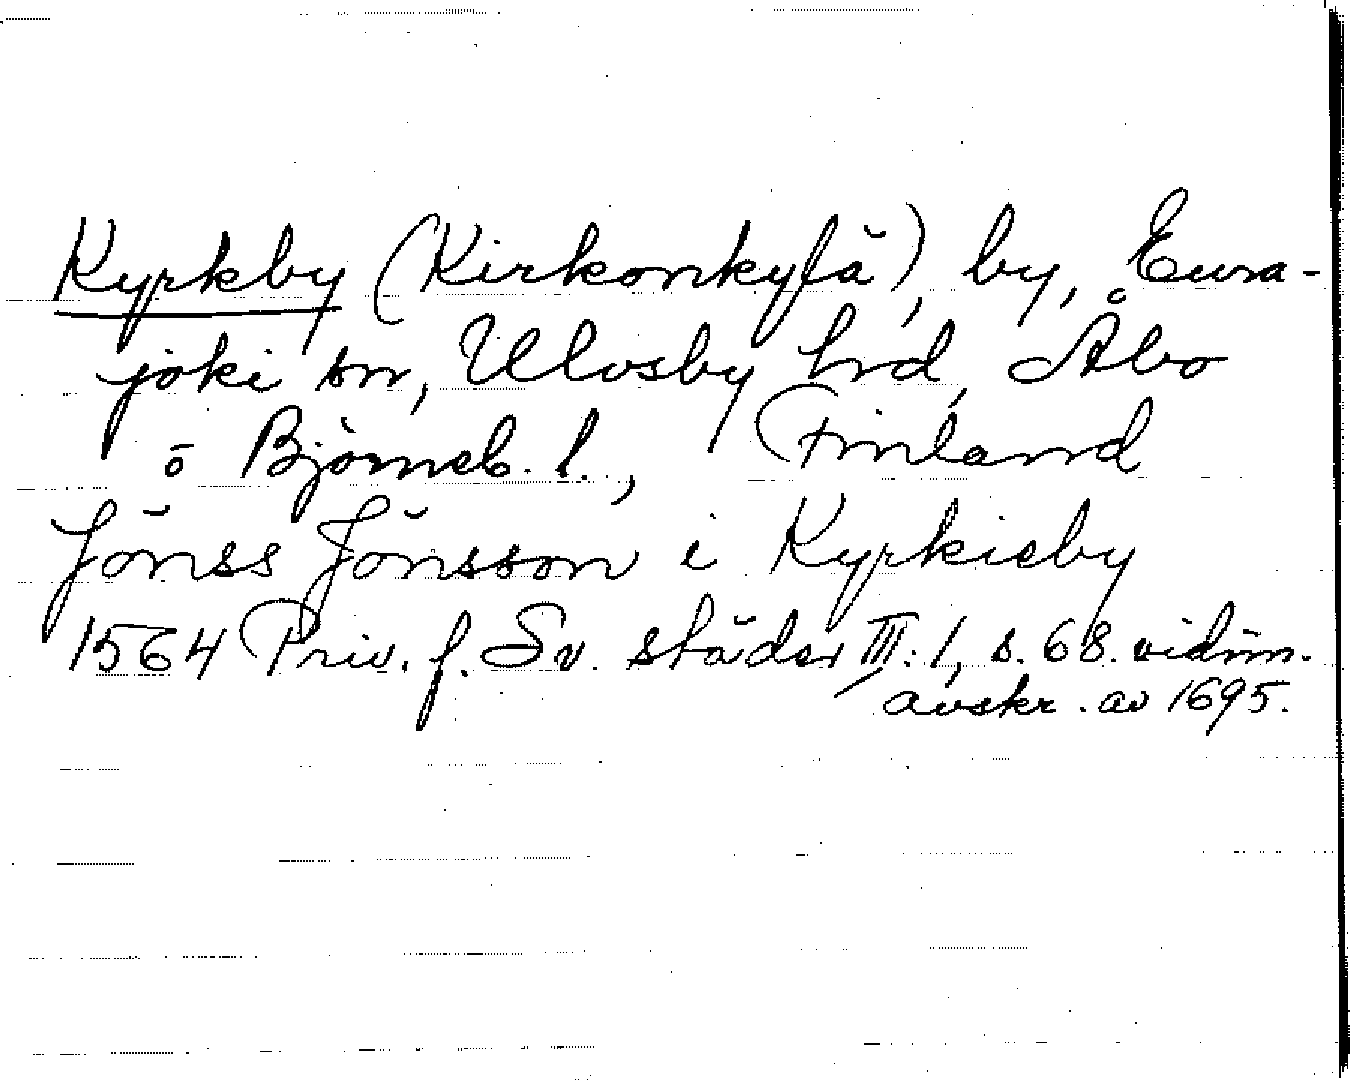 Kyrkby (Kirkonkylä), by, Eura-
joki sn, Ulvsby hrd, Åbo
o Björneb. l., Finland
Jönss Jönsson i Kyrkieby
1564 Priv. f. Sv. städer III: 1, s. 68. vidim.
avskr. av 1695.